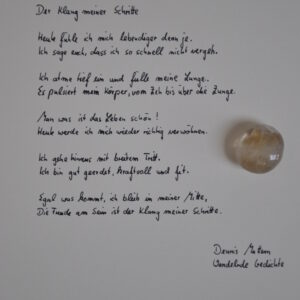 Der Klang meiner Schritte
Heute fühle ich mich lebendiger denn je.
Ich sage euch, dass ich so schnell nicht vergeh.
Ich atme tief ein und fülle meine Lunge.
Es pulsiert mein Körper, vom Zeh bis über die Zunge.
Man was ist das Leben schön!
Heute werde ich mich wieder richtig verwöhnen.
Ich gehe hinaus mit breitem Tritt.
Ich bin gut geerdet, kraftvoll und fit.
Egal was kommt, ich bleib in meiner Mitte,
Die Freude am Sein ist der Klang meiner Schritte.
Dennis
Wandelnde Gedichte